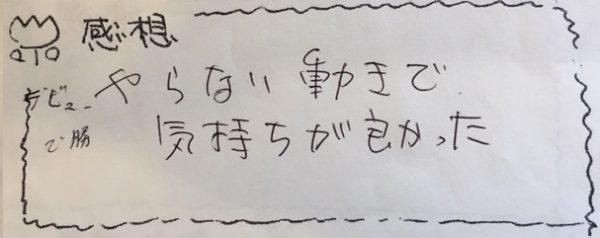 感想
やらない動きで
気持ちが良かった
デビュー
で勝